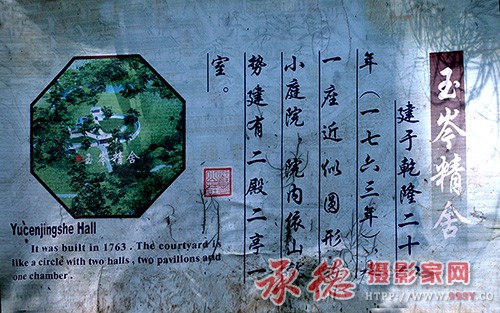 玉岑精舍
建于乾隆二十
年（一七六三年）
一座近似圆形
小庭院，院内依山
势建有二殿二亭一
室。
玉岑精舍
Yucenjingshe Hall
It was built in 1763. The courtyard is
like a circle with two halls, two pavilions and
one chamber.
承德摄影家网